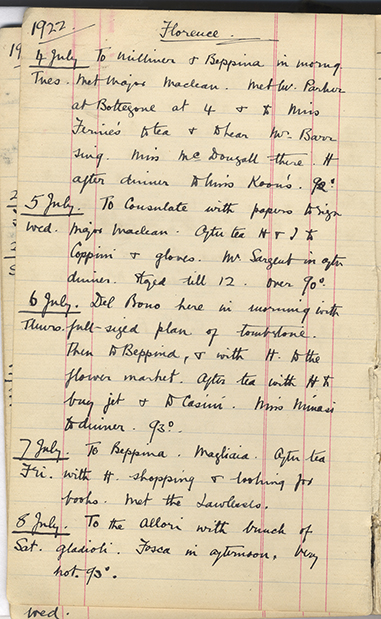 1922 Florence.
4 July To milliner & Beppina in morng
Tues. Met Major Maclean. Met W. Parker
at Bottegone at 4 & to Miss
Ferrie's to tea & to hear Mr. Barr
sing. Miss McDougall there. H
after dinner to Miss Koon's. 92°
5 July. To Consulate with papers to sign
Wed. Major Maclean. After tea H & I to
Coppini & gloves. Mr Sargent in after
dinner. Stayed till 12. over 90°.
6 July. Del Bono here in morning with
Thurs. full-sized plan of tombstone.
Then to Beppina, & with H. to the
flower market. After tea with H to
buy jet & to Casini. Miss Minasi
to dinner. 93°.
7 July. To Beppina. After tea
Fri. with H. shopping & looking for
books. Met the Lawlesses.
8 July. To the Allori with bunch of
Sat. gladioli. Tosca in afternoon. Very
hot. 93°.
Wed.